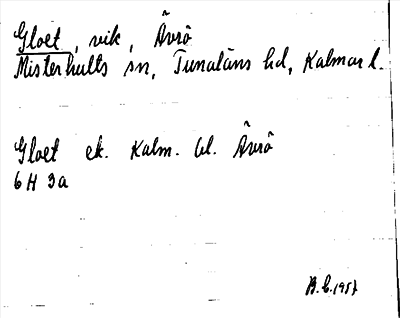 Gloet, vik, Ävrö
Misterhults sn, Tunaläns hd, Kalmar l.
Gloet ek. Kalm. bl. Ävrö
6 H 3a
B.E. 1957